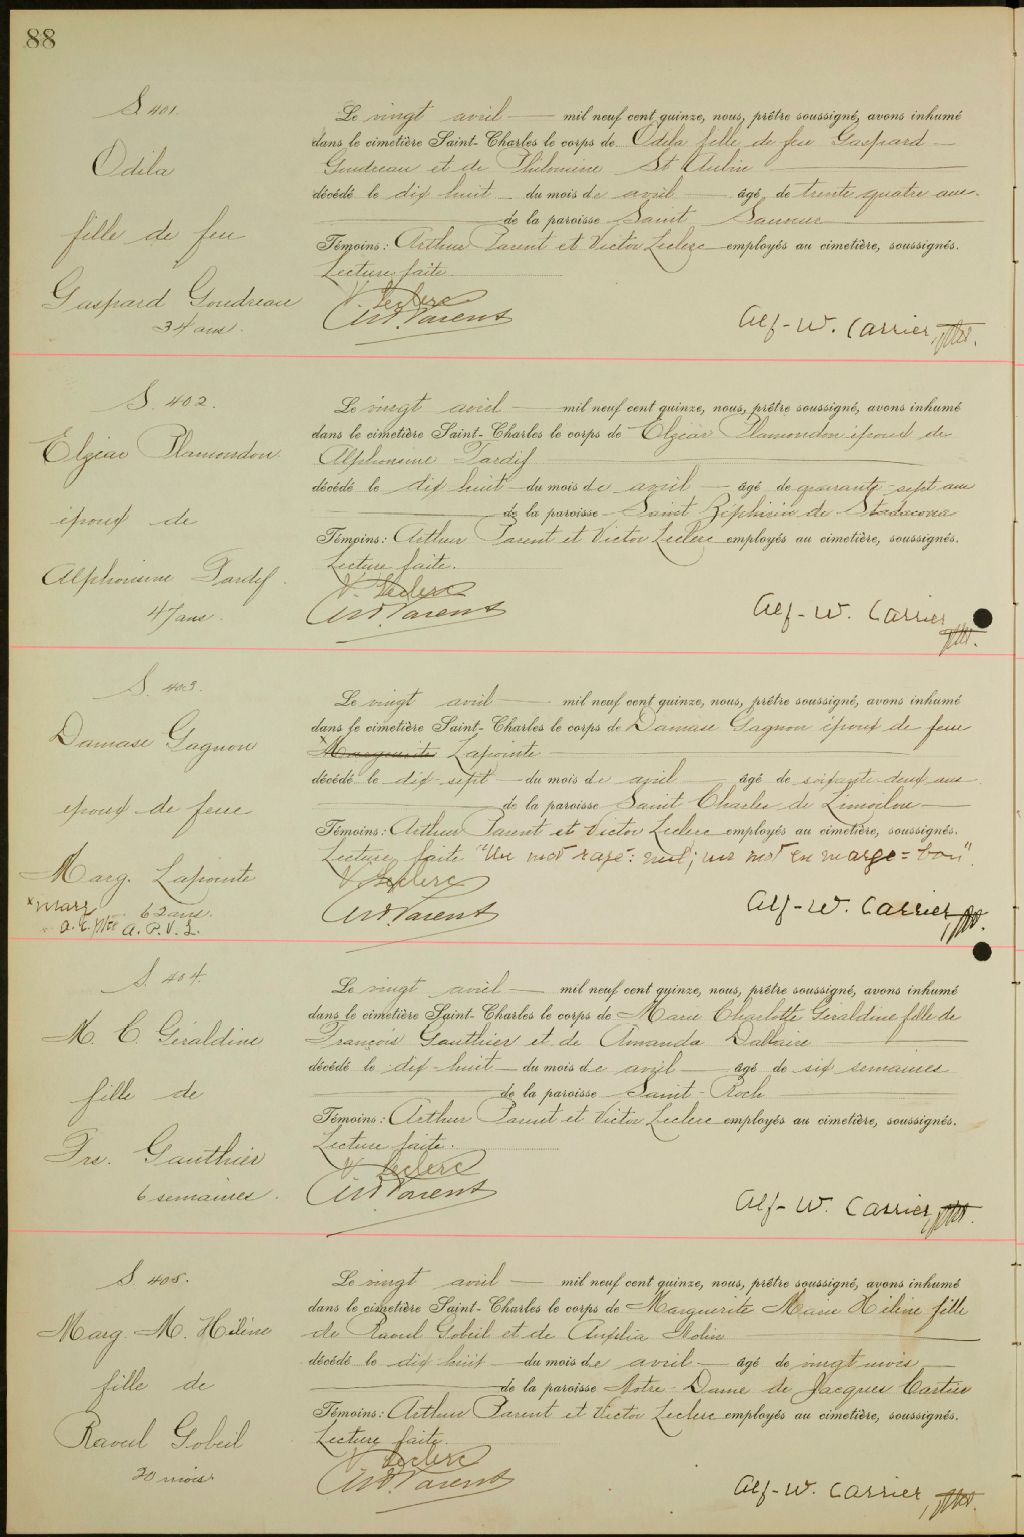 88
S. 401.
Odila
fille de feu
Gaspard Goudreau
34 ans.
Le vingt avril — mil neuf cent quinze, nous, prêtre soussigné, avons inhumé
dans le cimetière Saint-Charles le corps de Odila fille de feu Gaspard —
Goudreau et de Philomène St Aubin
décédé le dix huit — du mois de avril — âgé de trente quatre ans.
de la paroisse Saint Sauveur
Témoins : Arthur Parent et Victor Leclerc employés au cimetière, soussignés.
Lecture faite.
V. Leclerc
Art. Parent
Alf-W. Carrier, ptre.
S. 402.
Elzéar Plamondon
époux de
Alphonsine Tardif.
47 ans.
Le vingt avril — mil neuf cent quinze, nous, prêtre soussigné, avons inhumé
dans le cimetière Saint-Charles le corps de Elzéar Plamondon époux de
Alphonsine Tardif
décédé le dix huit — du mois de avril — âgé de quarante-sept ans
de la paroisse — Saint Zéphirin de Stadacona
Témoins : Arthur Parent et Victor Leclerc employés au cimetière, soussignés.
Lecture faite.
V. Leclerc
Art. Parent
Alf-W. Carrier
ptre.
S. 403.
Damase Gagnon
époux de feue
Marg. Lapointe
x Marg 62 ans.
A.C. ptre A.P. V.L.
Le vingt avril — mil neuf cent quinze, nous, prêtre soussigné, avons inhumé
dans le cimetière Saint-Charles le corps de Damase Gagnon époux de feue
x Marguerite Lapointe
décédé le dix-sept — du mois de avril — âgé de soixante-deux ans
de la paroisse Saint Charles de Limoilou —
Témoins : Arthur Parent et Victor Leclerc employés au cimetière, soussignés.
Lecture faite "Un mot rayé : nul ; un mot en marge = bon".
V. Leclerc
Art. Parent
Alf-W. Carrier, ptre.
S. 404.
M. C. Géraldine
fille de
Frs. Gauthier
6 semaines.
Le vingt avril — mil neuf cent quinze, nous, prêtre soussigné, avons inhumé
dans le cimetière Saint-Charles le corps de Marie Charlotte Géraldine fille de
François Gauthier et de Amanda Dallaire
décédé le dix-huit — du mois de avril — âgé de six semaines
de la paroisse Saint-Roch
Témoins : Arthur Parent et Victor Leclerc employés au cimetière, soussignés.
Lecture faite.
V. Leclerc
Art. Parent
Alf-W. Carrier, ptre.
S. 405.
Marg. M. Hélène
fille de
Raoul Gobeil
20 mois
Le vingt avril — mil neuf cent quinze, nous, prêtre soussigné, avons inhumé
dans le cimetière Saint-Charles le corps de Marguerite Marie Hélène fille
de Raoul Gobeil et de Auxilia Molin
décédé le dix huit — du mois de avril — âgé de vingt mois —
de la paroisse Notre-Dame de Jacques Cartier
Témoins : Arthur Parent et Victor Leclerc employés au cimetière, soussignés.
Lecture faite.
V. Leclerc
Art. Parent
Alf-W. Carrier, ptre.